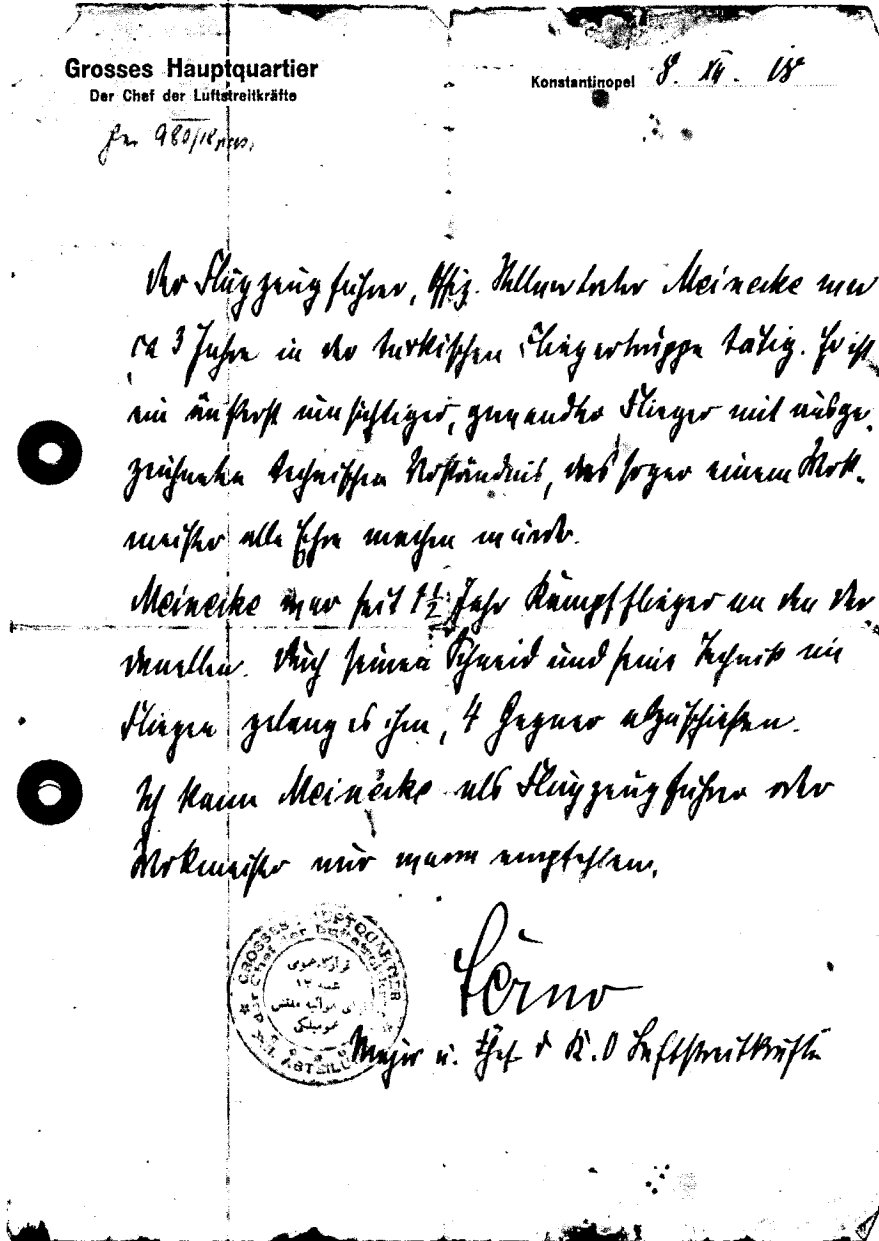 Grosses Hauptquartier
Der Chef der Luftstreitkräfte
Konstantinopel 8. XII. 18
980/18
Der Flugzeugführer, Offiz. Stellvertreter Meinecke war
ca 3 Jahre in der türkischen Fliegertruppe tätig. Er ist
ein äußerst umsichtiger, gewandter Flieger mit ausge-
zeichneten technischen Verständnis, das sogar einem Werk-
meister alle Ehre machen würde.
Meinecke war seit 1 1/2 Jahr Kampfflieger an den Dar
danellen. Durch seinen Schneid und seine Technik im
Fliegen gelang es ihm, 4 Gegner abzuschießen.
Ich kann Meinecke als Flugzeugführer oder
Werkmeister nur warm empfehlen.
GROSSES HAUPTQUARTIER
Der Chef der
ABTEILUNG
شعبه ١٣
Major u. Chef d K. O Luftstreitkräfte